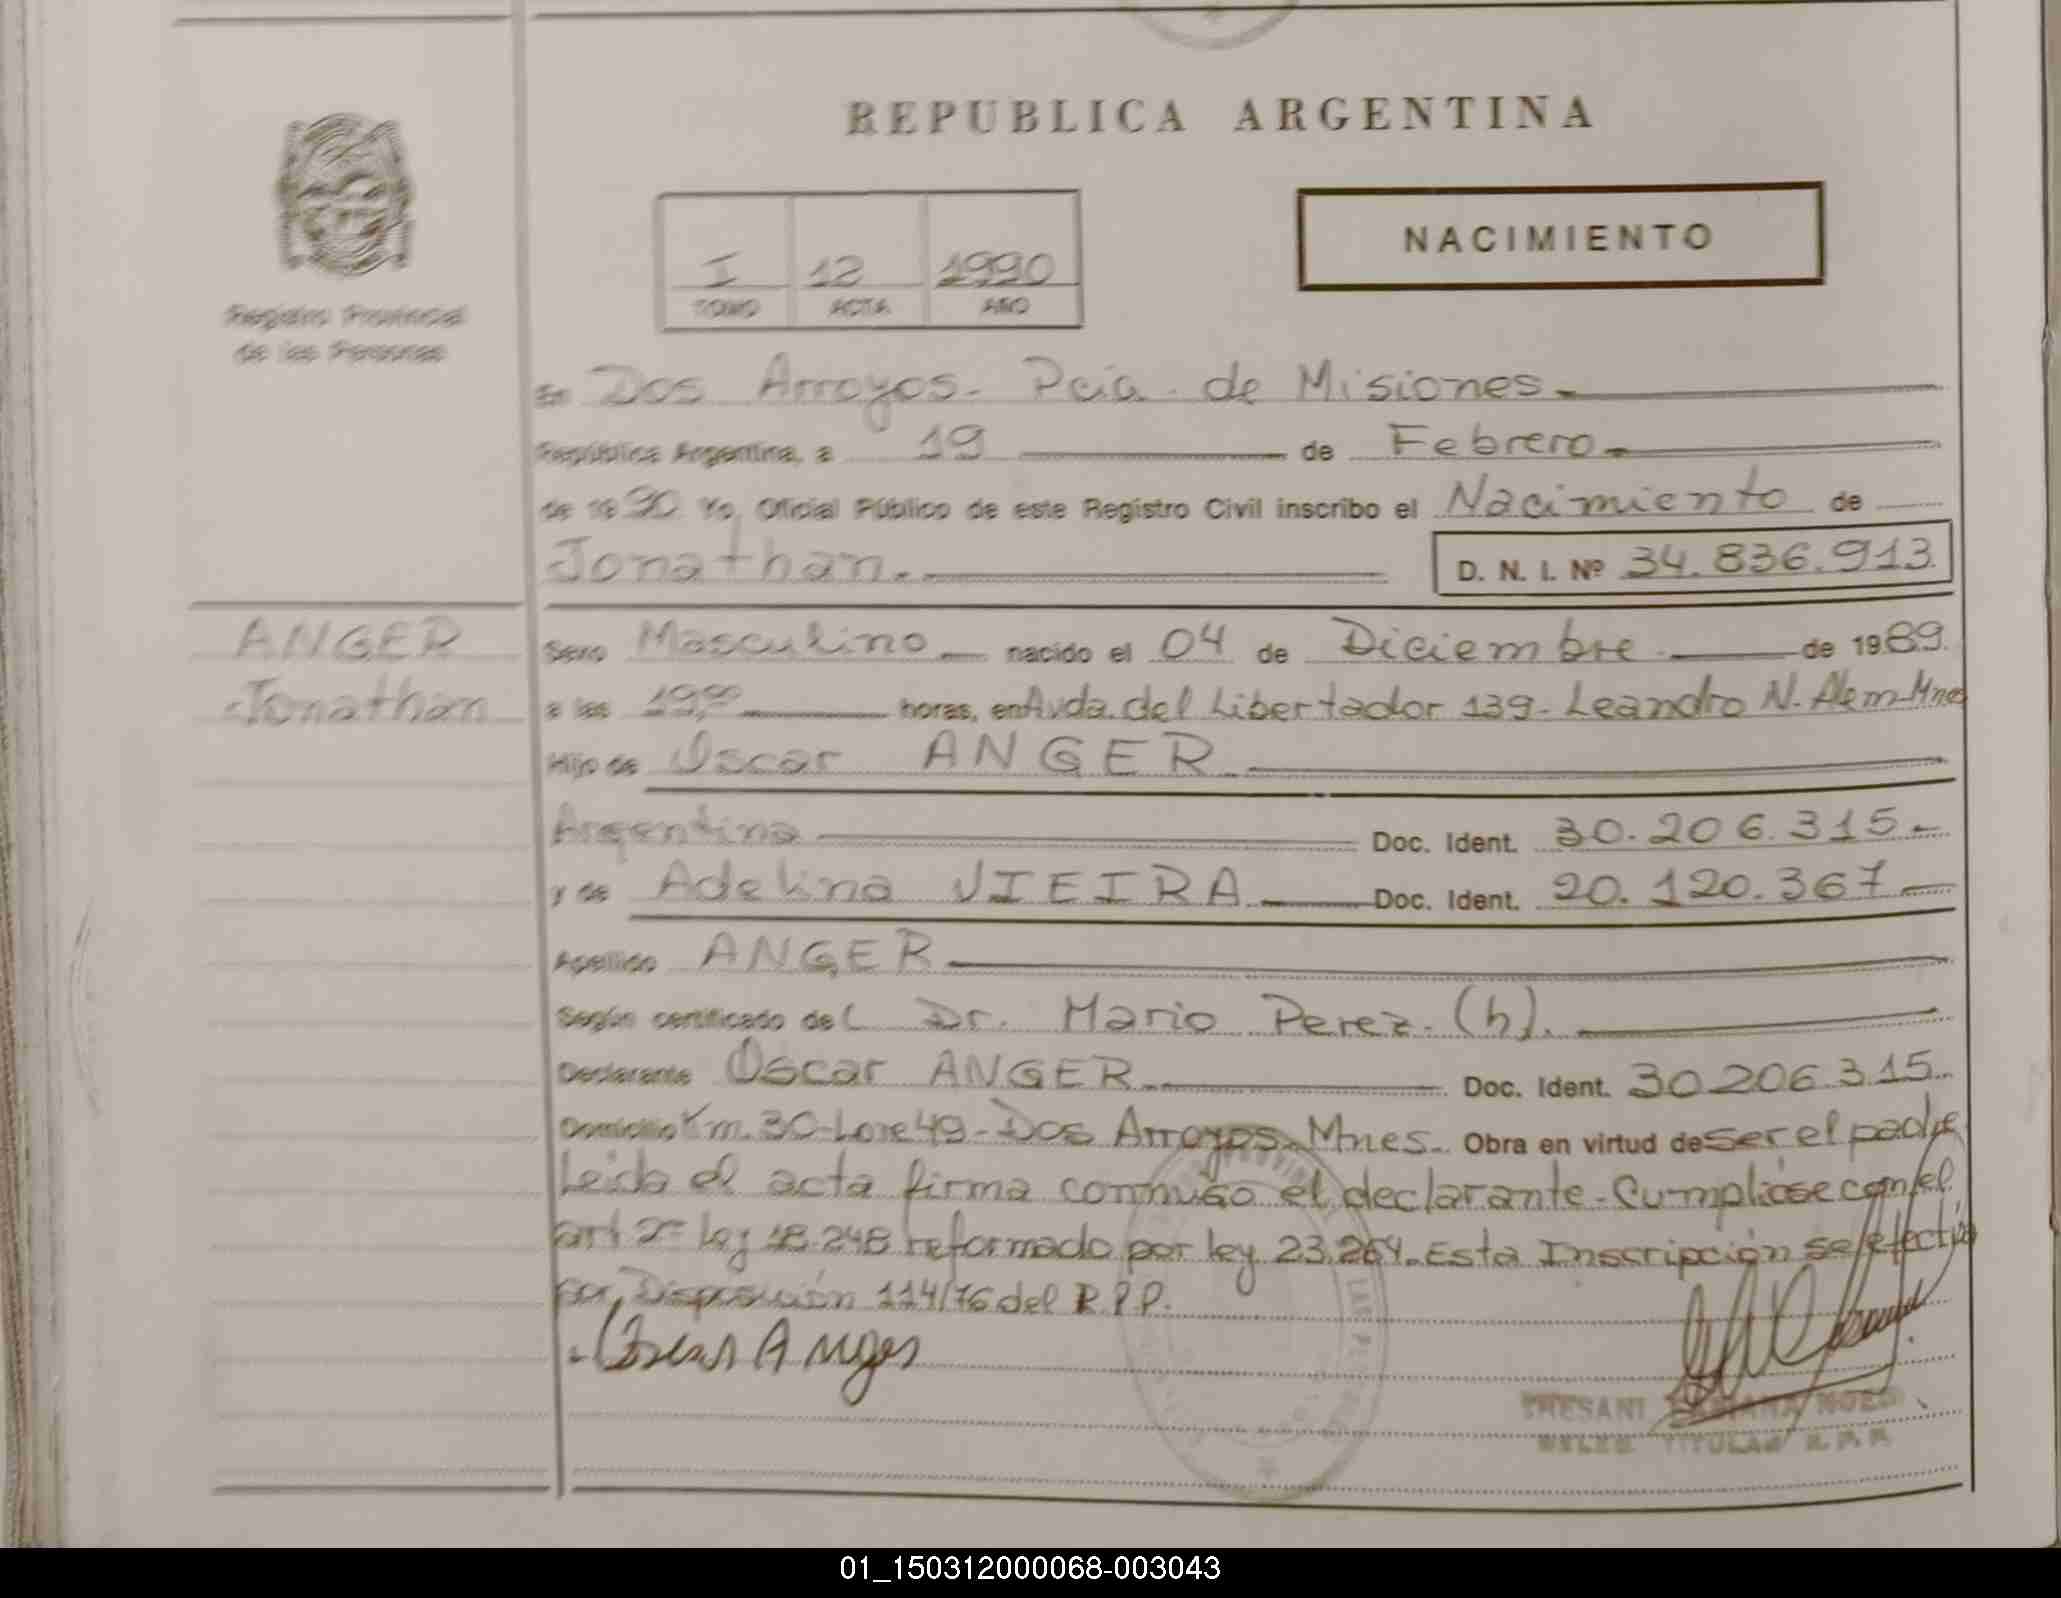 REPUBLICA ARGENTINA
NACIMIENTO
I 12 1990
TOMO ACTA AÑO
Registro Provincial
de las Personas
En Dos Arroyos - Pcia. de Misiones.
República Argentina, a 19 de Febrero.
de 1990 Yo, Oficial Público de este Registro Civil inscribo el Nacimiento de
Jonathan.
D. N. I. Nº 34.836.913
ANGER
Jonathan
Sexo Masculino nacido el 04 de Diciembre de 1989.
a las 19,00 horas, en Avda. del Libertador 139 - Leandro N. Alem - Mnes
Hijo de Oscar ANGER
Argentina Doc. Ident. 30.206.315 -
y de Adelina VIEIRA Doc. Ident. 20.120.367
Apellido ANGER
Según certificado del Dr. Mario Perez. (h).
Declarante Oscar ANGER Doc. Ident. 30206.315.
Domicilio Km. 30 - Lote 49 - Dos Arroyos - Mnes. Obra en virtud de ser el padre
Leida el acta firma conmigo el declarante - Cumpliose con el
art 2º ley 18.248 reformado por ley 23.264. Esta Inscripción se efectúa
por Disposición 114/76 del R.P.P.
Oscar Anger
TITULAR R.P.P.
01_150312000068-003043